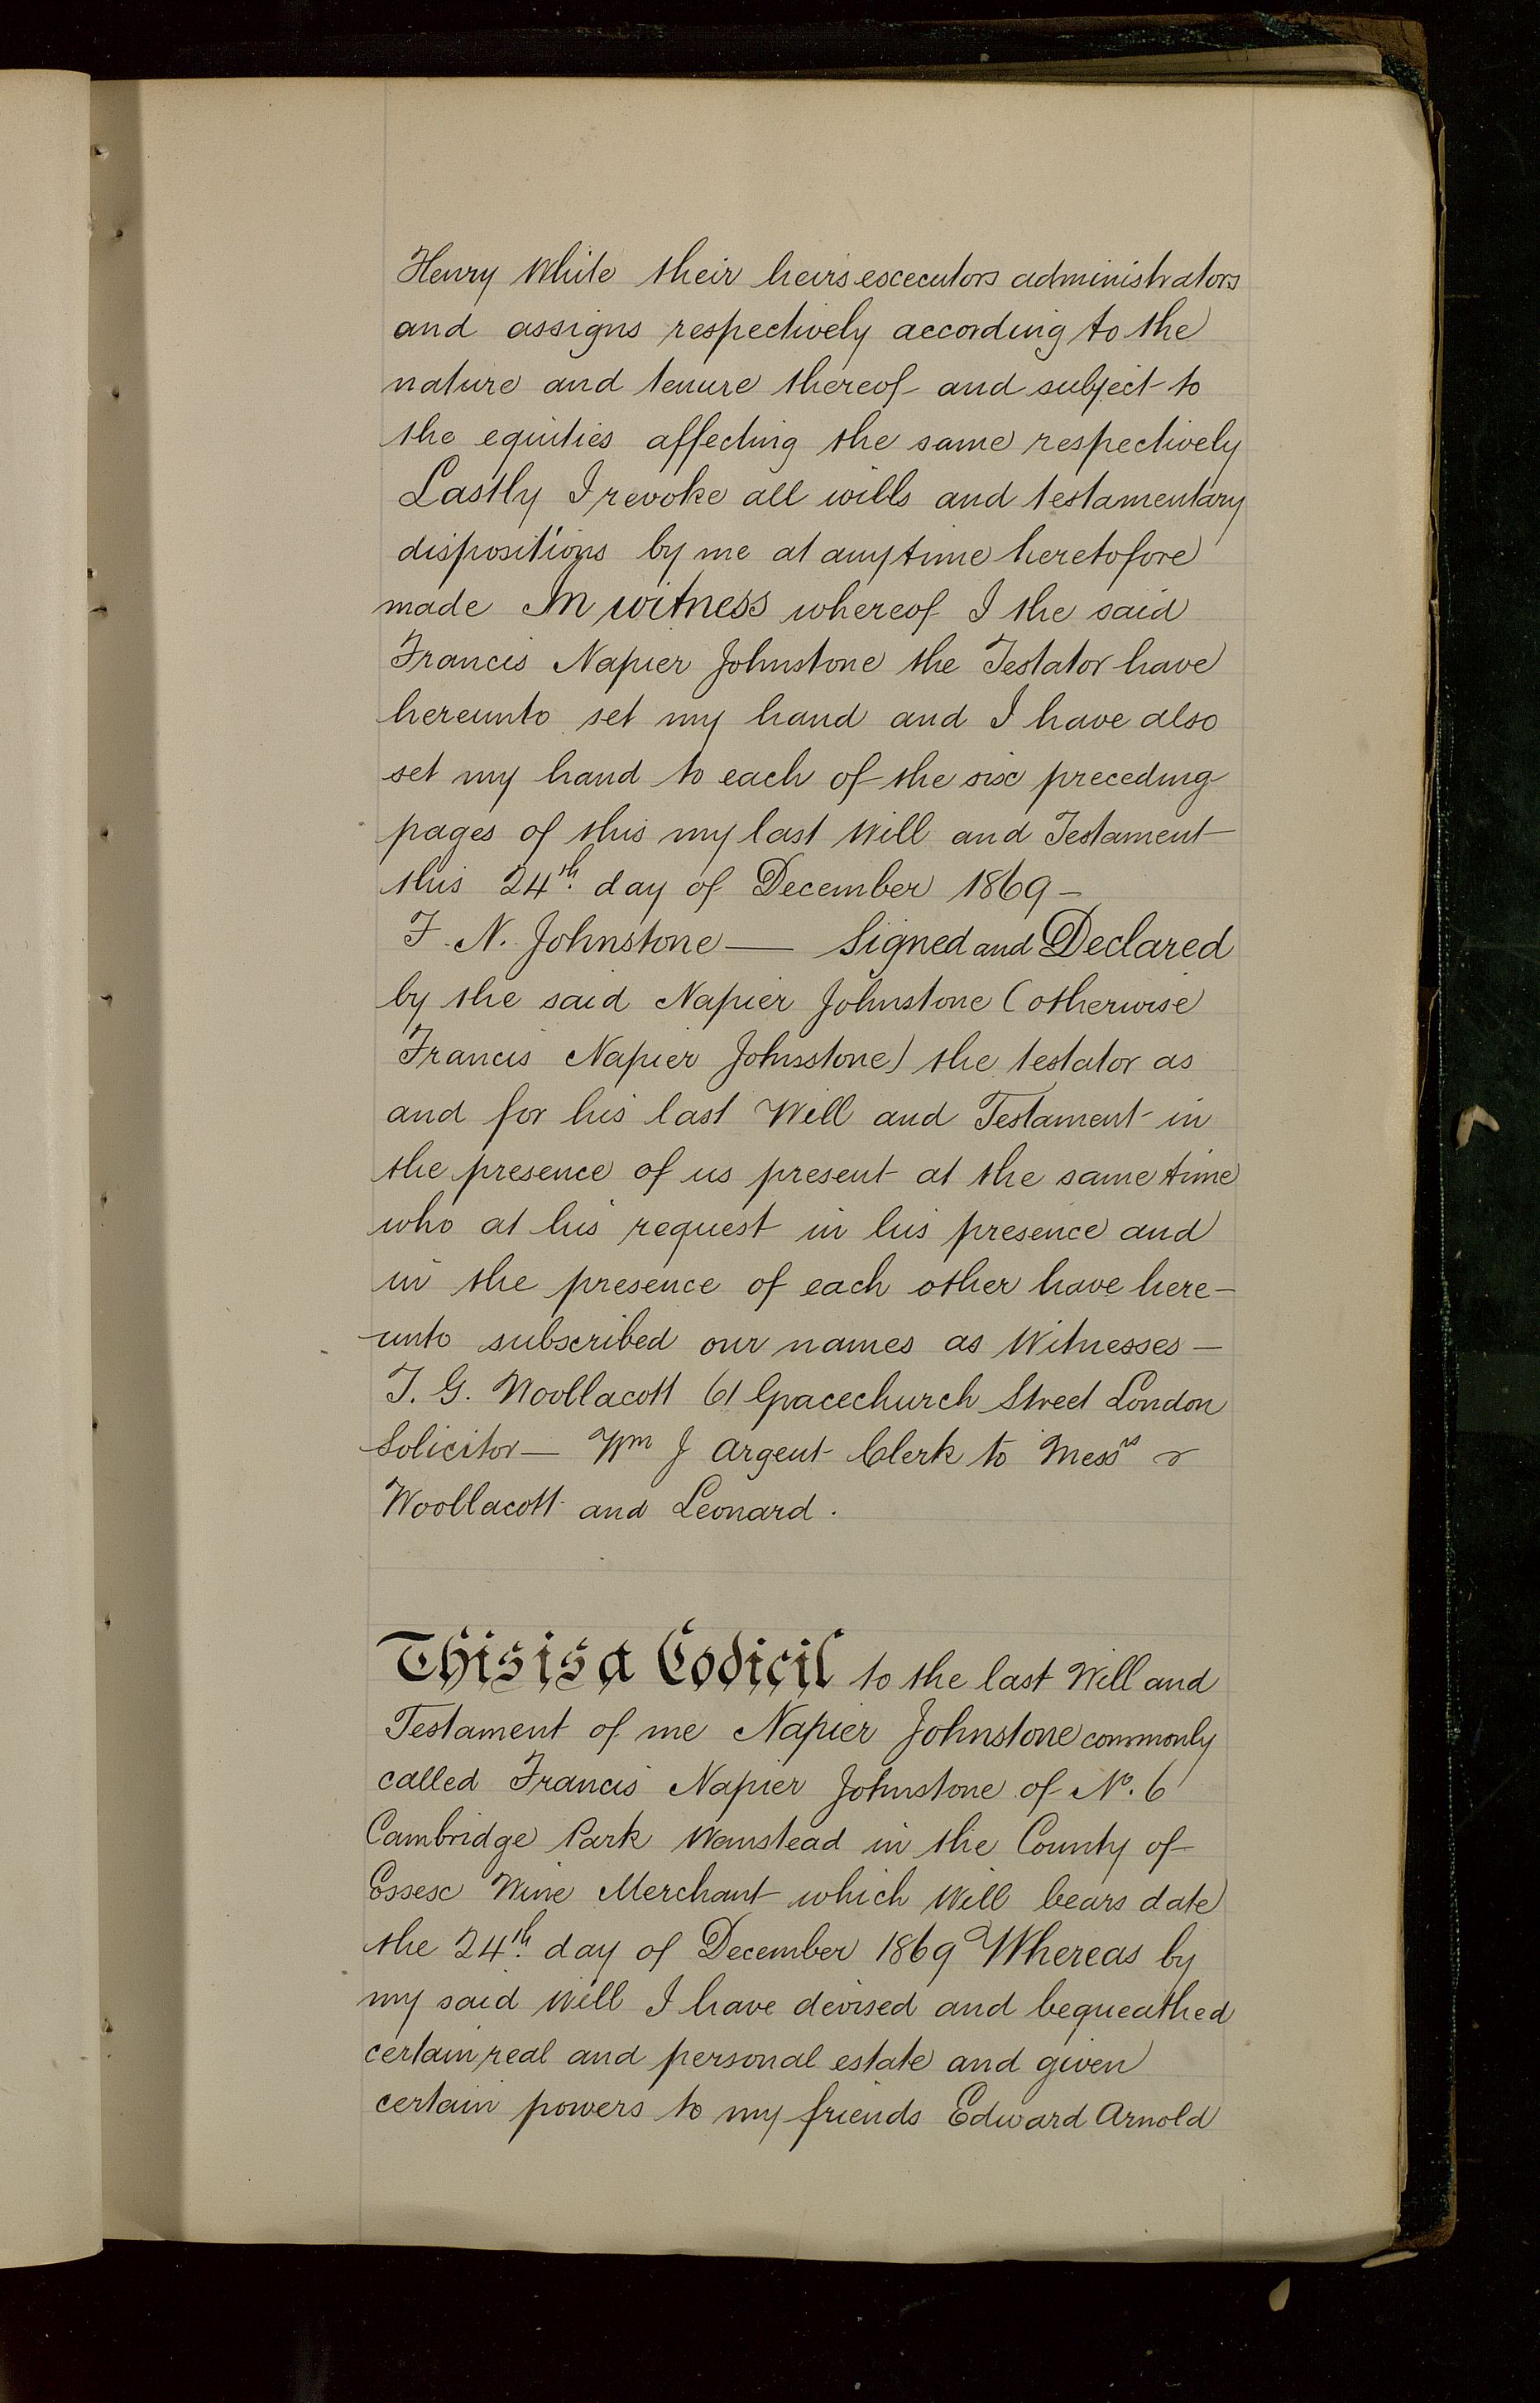 Henry White their heirs executors administrators
and assigns respectively according to the
nature and tenure thereof and subject to
the equities affecting the same respectively
Lastly I revoke all wills and testamentary
dispositions by me at any time heretofore
made In witness whereof I the said
Francis Napier Johnstone the Testator have
hereunto set my hand and I have also
set my hand to each of the six preceding
pages of this my last Will and Testament
this 24th. day of December 1869 —
F. N. Johnstone — Signed and Declared
by the said Napier Johnstone (otherwise
Francis Napier Johnsstone) the testator as
and for his last Will and Testament in
the presence of us present at the same time
who at his request in his presence and
in the presence of each other have here-
unto subscribed our names as Witnesses —
T. G. Woollacott 61 Gracechurch Street London
Solicitor — Wm J Argent Clerk to Messrs
Woollacott and Leonard.
This is a Codicil to the last Will and
Testament of me Napier Johnstone commonly
called Francis Napier Johnstone of No. 6
Cambridge Park Wanstead in the County of
Essex Wine Merchant which Will bears date
the 24th. day of December 1869 Whereas by
my said Will I have devised and bequeathed
certain real and personal estate and given
certain powers to my friends Edward Arnold